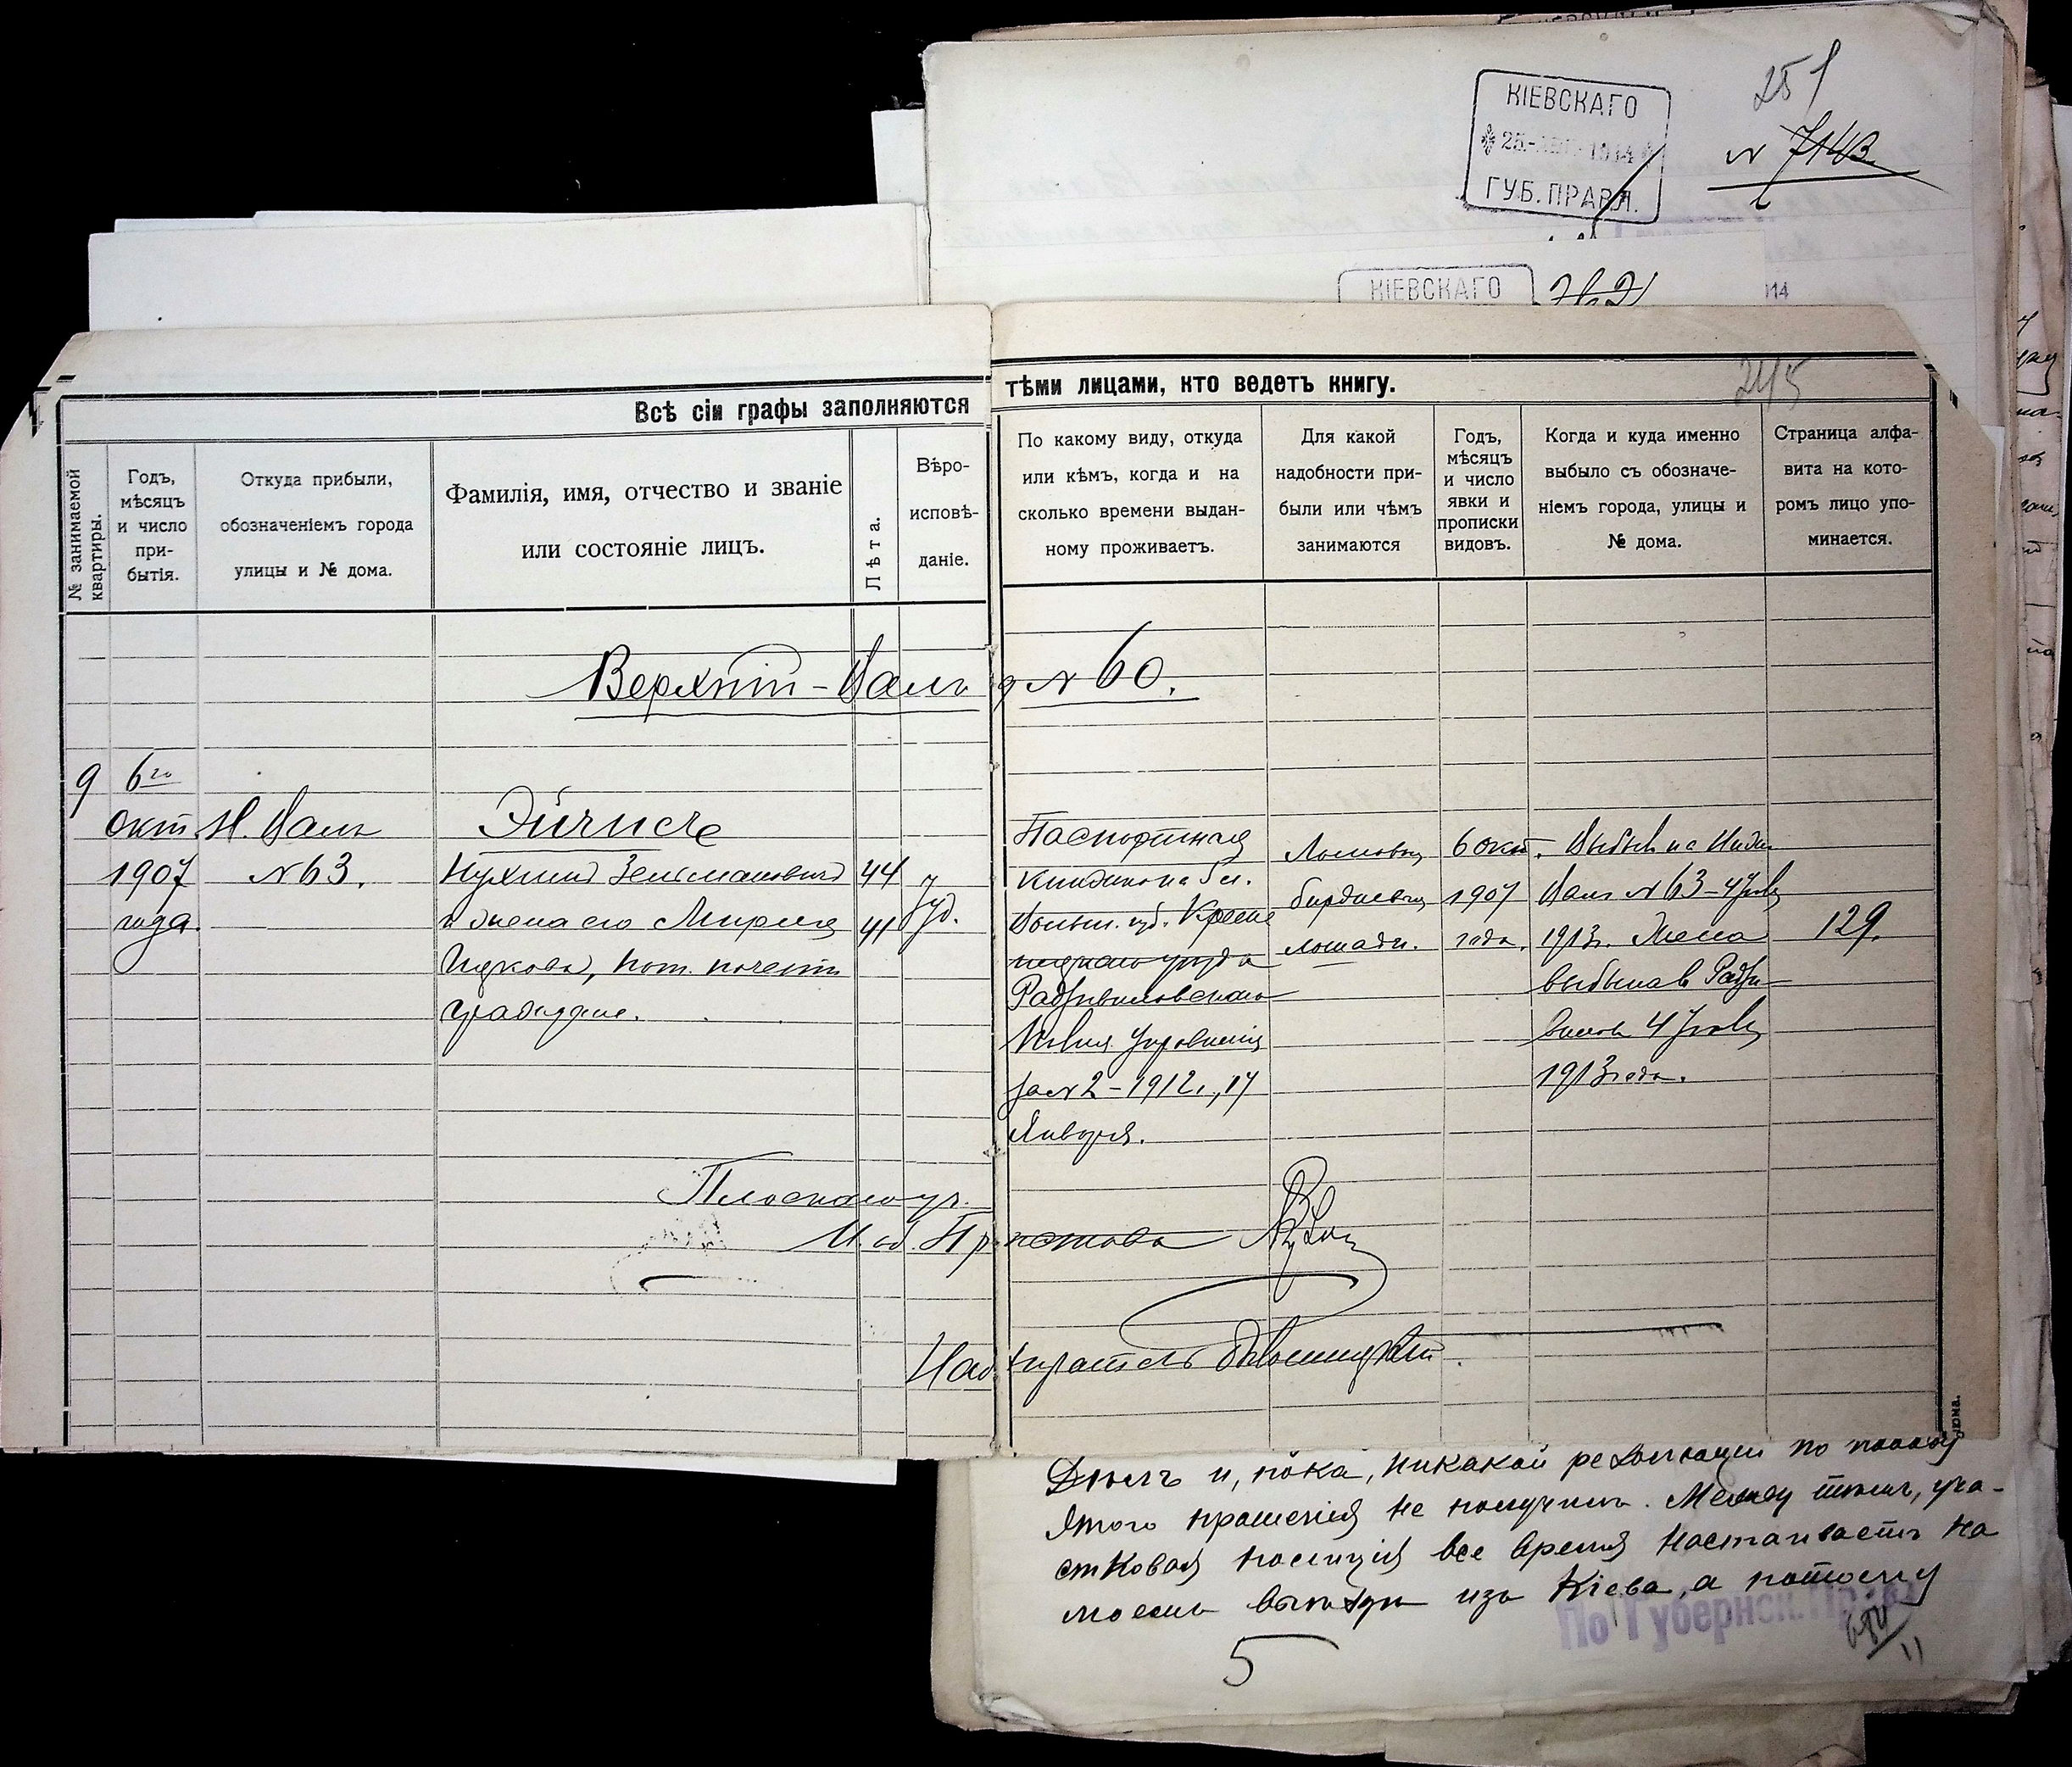 251
КІЕВСКАГО
1914
ГУБ. ПРАВЛ.
N 7143
КІЕВСКАГО
245
Всѣ сіи графы заполняются тѣми лицами, кто ведетъ книгу.
№ занимаемой квартиры.
Годъ, мѣсяцъ и число при-бытія.
Откуда прибыли, обозначеніемъ города улицы и № дома.
Фамилія, имя, отчество и званіе или состояніе лицъ.
Лѣта.
Вѣро-исповѣ-даніе.
По какому виду, откуда или кѣмъ, когда и на сколько времени выдан-ному проживаетъ.
Для какой надобности при-были или чѣмъ занимаются
Годъ, мѣсяцъ и число явки и прописки видовъ.
Когда и куда именно выбыло съ обозначе-ніемъ города, улицы и № дома.
Страница алфа-вита на кото-ромъ лицо упо-минается.
Верхній-Валъ д N 60.
9
6го
окт.
1907
года.
Н. Валъ
N 63.
Эйчисъ
Нухимъ Зельмановичъ
и жена его Мириля
Ицкова, пот. почетн
граждане.
44
41
Іуд.
Паспортная
книжка на бл.
Волын. губ. Креме
нецкаго уѣзда
Радзивиловскаго
управленія
за N 2 - 1912 г., 17
Января.
лошади.
6 окт.
1907
года.
Выбылъ на Нижн
Валъ N 63 - 4
1913 г. Жена
выбыла в Радзи
вилов 4
1913 года.
129.
Плоскаго уч.
И. об. Пристава
Надзиратель
и, пока, никакой резолюціи по поводу
этого прошенія не получилъ. Между тѣмъ, уча-
стковая полиція все время настаиваетъ на
моемъ выѣздѣ изъ Кіева, а потому
По Губернск.
5